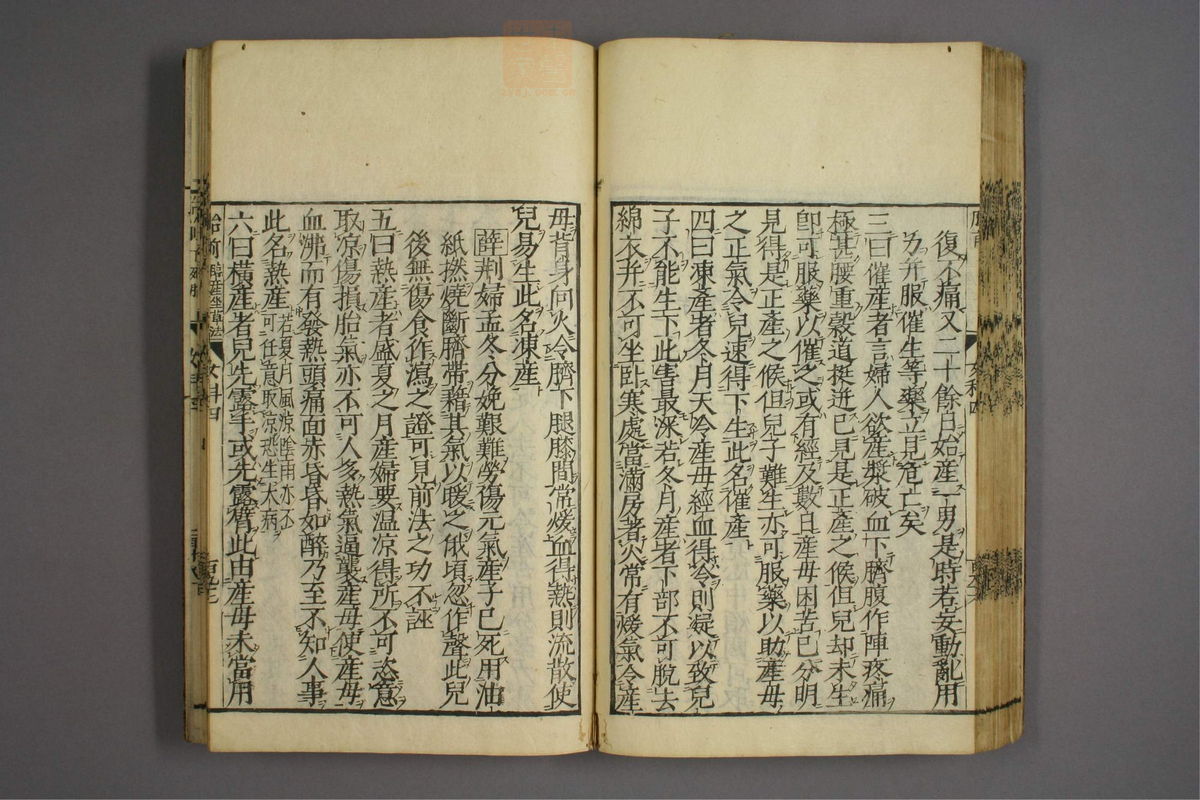 復不痛又二十餘日始產一男是時若妄動亂用
力并服催生等藥立見危亡矣
三曰催產者言婦人欲產漿破血下臍腹作陣疼痛
極甚腰重穀道挺迸已見是正產之候但兒却未生
即可服藥以催之或有經及數日產母困苦已分明
見得是正產之候但兒子難生亦可服藥以助產母
之正氣令兒速得下生此名催產
四曰凍產者冬月天冷產母經血得冷則凝以致兒
子不能生下此害最深若冬月產者下部不可脫去
綿衣并不可坐臥寒處當滿房著火常有煖氣令產
母背身向火令臍下腿膝間常煖血得熱則流散使
兒易生此名凍產
薛荆婦孟冬分娩艱難勞傷元氣產子已死用油
紙撚燒斷臍帶藉其氣以煖之俄頃忽作聲此兒
後無傷食作瀉之證可見前法之功不誣
五曰熱產者盛夏之月產婦要温涼得所不可恣意
取涼傷損胎氣亦不可人多熱氣逼襲產母使產母
血沸而有發熱頭痛面赤昏昏如醉乃至不知人事
此名熱產若夏月風涼陰雨亦不可任意取涼恐生大病
六曰橫產者兒先露手或先露臂此由產母未當用
胎前
女科四